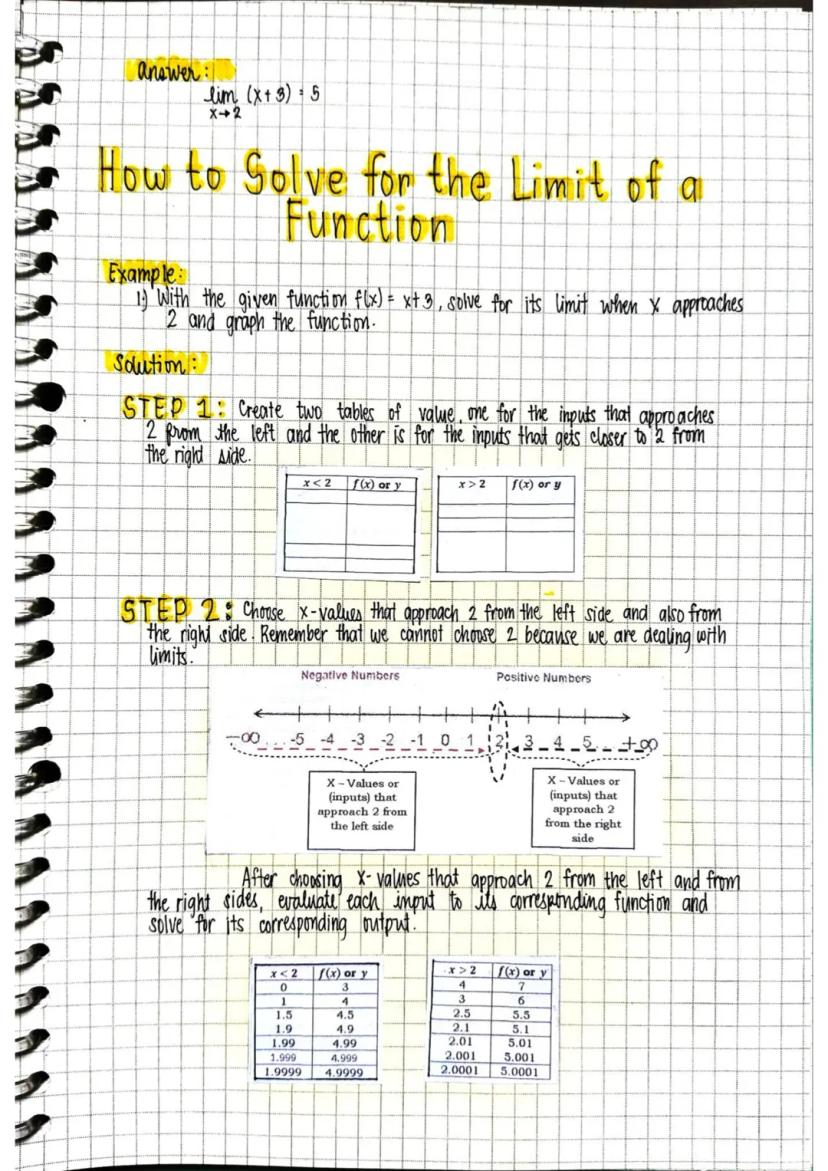 Answer:
lim (x+3) = 5
x→2
How to Solve for the Limit of a
Function
Example:
1.) With the given function f(x) = x+3, solve for its limit when x approaches
2 and graph the function.
Solution:
STEP 1: Create two tables of value, one for the inputs that approaches
2 from the left and the other is for the inputs that gets closer to 2 from
the right side.
x < 2 f(x) or y x > 2 f(x) or y
STEP 2: Choose x-values that approach 2 from the left side and also from
the right side. Remember that we cannot choose 2 because we are dealing with
limits.
Negative Numbers Positive Numbers
-∞ ... -5 -4 -3 -2 -1 0 1 2 3 4 5 ... +∞
X – Values or
(inputs) that
approach 2 from
the left side
X – Values or
(inputs) that
approach 2
from the right
side
After choosing x-values that approach 2 from the left and from
the right sides, evaluate each input to its corresponding function and
solve for its corresponding output.
x < 2 f(x) or y
0 3
1 4
1.5 4.5
1.9 4.9
1.99 4.99
1.999 4.999
1.9999 4.9999
x > 2 f(x) or y
4 7
3 6
2.5 5.5
2.1 5.1
2.01 5.01
2.001 5.001
2.0001 5.0001